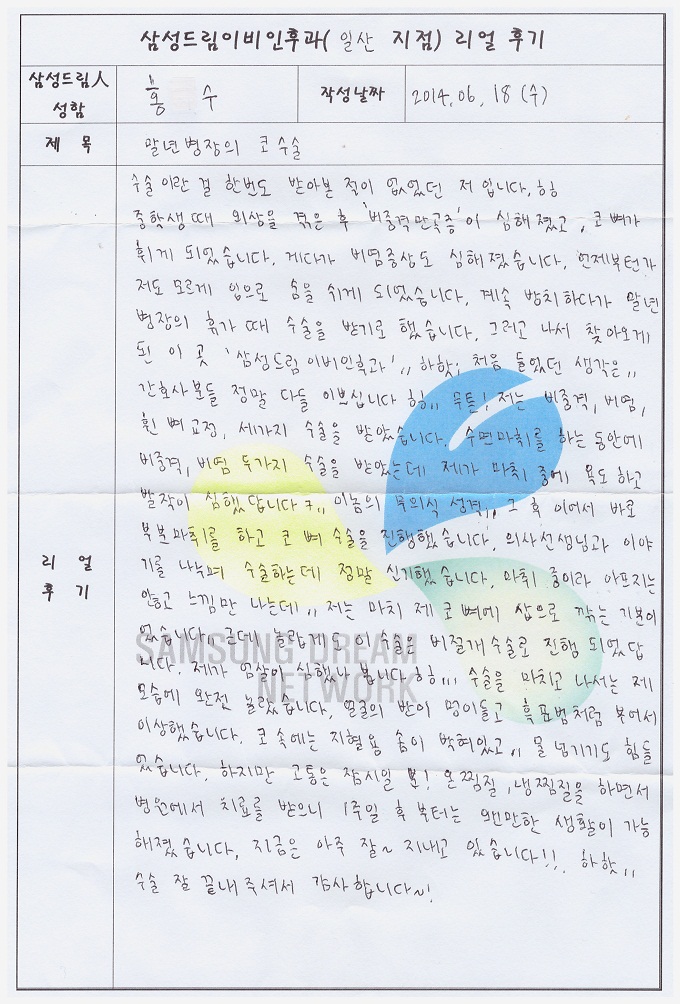 삼성드림이비인후과( 일산 지점) 리얼 후기
삼성드림人 성함
홍 수
작성날짜
2014. 06. 18 (수)
제 목
말년병장의 코수술
리 얼 후 기
수술 이란 걸 한번도 받아본 적이 없었던 저 입니다. 힝
중학생때 외상을 겪은 후 '비중격만곡증'이 심해졌고, 코뼈가
휘게 되었습니다. 게다가 비염증상도 심해졌습니다. 언제부턴가
저도 모르게 입으로 숨을 쉬게 되었습니다. 계속 방치하다가 말년
병장의 휴가 때 수술을 받기로 했습니다. 그러고 나서 찾아오게
된 이 곳 '삼성드림이비인후과',, 하핫; 처음 들었던 생각은,,
간호사분들 정말 다들 이쁘십니다 힝,, 무튼! 저는 비중격, 비염,
휜 뼈교정, 세가지 수술을 받았습니다. 수면마취를 하는 동안에
비중격, 비염 두가지 수술을 받았는데 제가 마취 중에 욕도 하고
발작이 심했답니다ㅋ,, 이놈의 무의식 성격,, 그 후 이어서 바로
부분마취를 하고 코 뼈 수술을 진행했습니다. 의사선생님과 이야
기를 나누며 수술하는데 정말 신기했습니다. 마취 중이라 아프지는
않고 느낌만 나는데,, 저는 마치 제 코뼈에 삽으로 깎는 기분이
었습니다. 근데 놀랍게도 이 수술은 비절개수술로 진행 되었답
니다. 제가 엄살이 심했나 봅니다 힝,,, 수술을 마치고 나서는 제
모습에 완전 놀랐습니다. 얼굴의 반이 멍이들고 흑표범처럼 부어서
이상했습니다. 코 속에는 지혈용 솜이 박혀있고,, 물 넘기기도 힘들
었습니다. 하지만 고통은 잠시일 뿐! 온찜질, 냉찜질을 하면서
병원에서 치료를 받으니 1주일 후 부터는 왠만한 생활이 가능
해졌습니다. 지금은 아주 잘~ 지내고 있습니다!!. 하핫,,
수술 잘 끝내주셔서 감사합니다~!
SAMSUNG DREAM
NETWORK